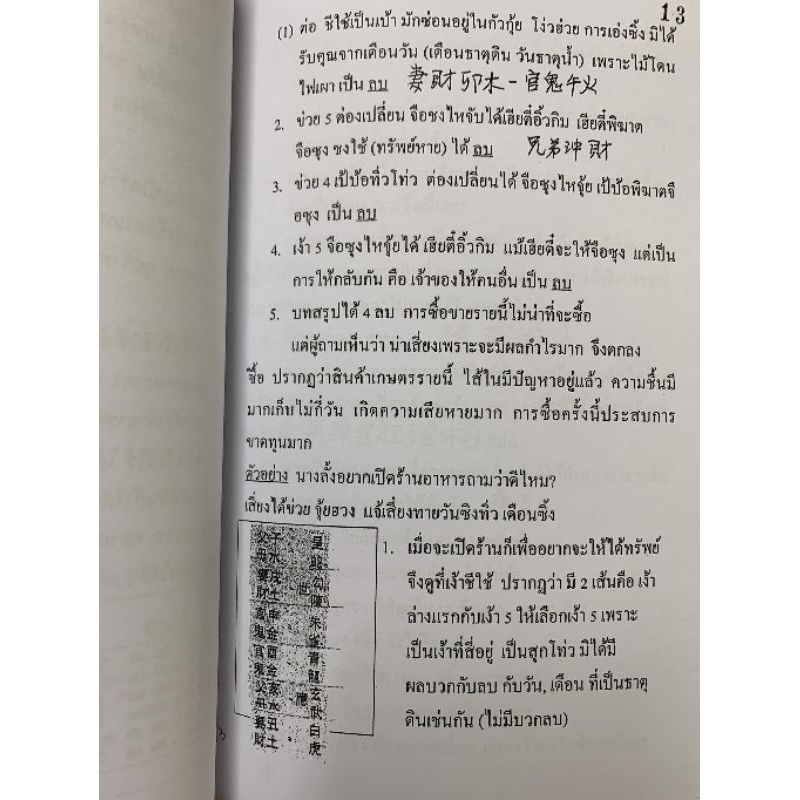 13
(1) ต่อ ชีใช้เป็นเป้า มักซ่อนอยู่ในกัวกุ้ย โง่วฮ่วย การเอ่งซิ้ง มิได้
รับคุณจากเดือนวัน (เดือนธาตุดิน วันธาตุน้ำ) เพราะไม้โดน
ไฟเผา เป็น ลบ 妻財卯木 - 官鬼午火
2. ข่วย 5 ต่องเปลี่ยน จือซงไหจับได้เฮียตี๋อิ้วกิม เฮียตี๋พิฆาต
จือซุง ชงใช้ (ทรัพย์หาย) ได้ ลบ 兄弟冲財
3. ข่วย 4 เป้บ้อทิ่วโท่ว ต่องเปลี่ยนได้ จือซุงไหจุ้ย เป้บ้อพิฆาตจื
อซุง เป็น ลบ
4. เง้า 5 จือซุงไหจุ้ยได้ เฮียตี๋อิ้วกิม แม้เฮียตี๋จะให้จือซุง แต่เป็น
การให้กลับกัน คือ เจ้าของให้คนอื่น เป็น ลบ
5. บทสรุปได้ 4 ลบ การซื้อขายรายนี้ไม่น่าที่จะซื้อ
แต่ผู้ถามเห็นว่า น่าเสี่ยงเพราะจะมีผลกำไรมาก จึงตกลง
ซื้อ ปรากฏว่าสินค้าเกษตรรายนี้ ไส้ในมีปัญหาอยู่แล้ว ความชื้นมี
มากเก็บไม่กี่วัน เกิดความเสียหายมาก การซื้อครั้งนี้ประสบการ
ขาดทุนมาก
ตัวอย่าง นางลั้งอยากเปิดร้านอาหารถามว่าดีไหม?
เสี่ยงได้ข่วย จุ้ยฮวง แจ้เสี่ยงทายวันซิงทิ่ว เดือนซิ้ง
父子 呈
母水 照
妻戌 世 勾
財土 陳
官申 朱
鬼金 雀
官酉 青
鬼金 龍
父亥 應 玄
母水 武
妻丑 白
財土 虎
1. เมื่อจะเปิดร้านก็เพื่ออยากจะให้ได้ทรัพย์
จึงดูที่เง้าชีใช้ ปรากฏว่า มี 2 เส้นคือ เง้า
ล่างแรกกับเง้า 5 ให้เลือกเง้า 5 เพราะ
เป็นเง้าที่สี่อยู่ เป็นสุกโท่ว มิได้มี
ผลบวกกับลบ กับวัน, เดือน ที่เป็นธาตุ
ดินเช่นกัน (ไม่มีบวกลบ)